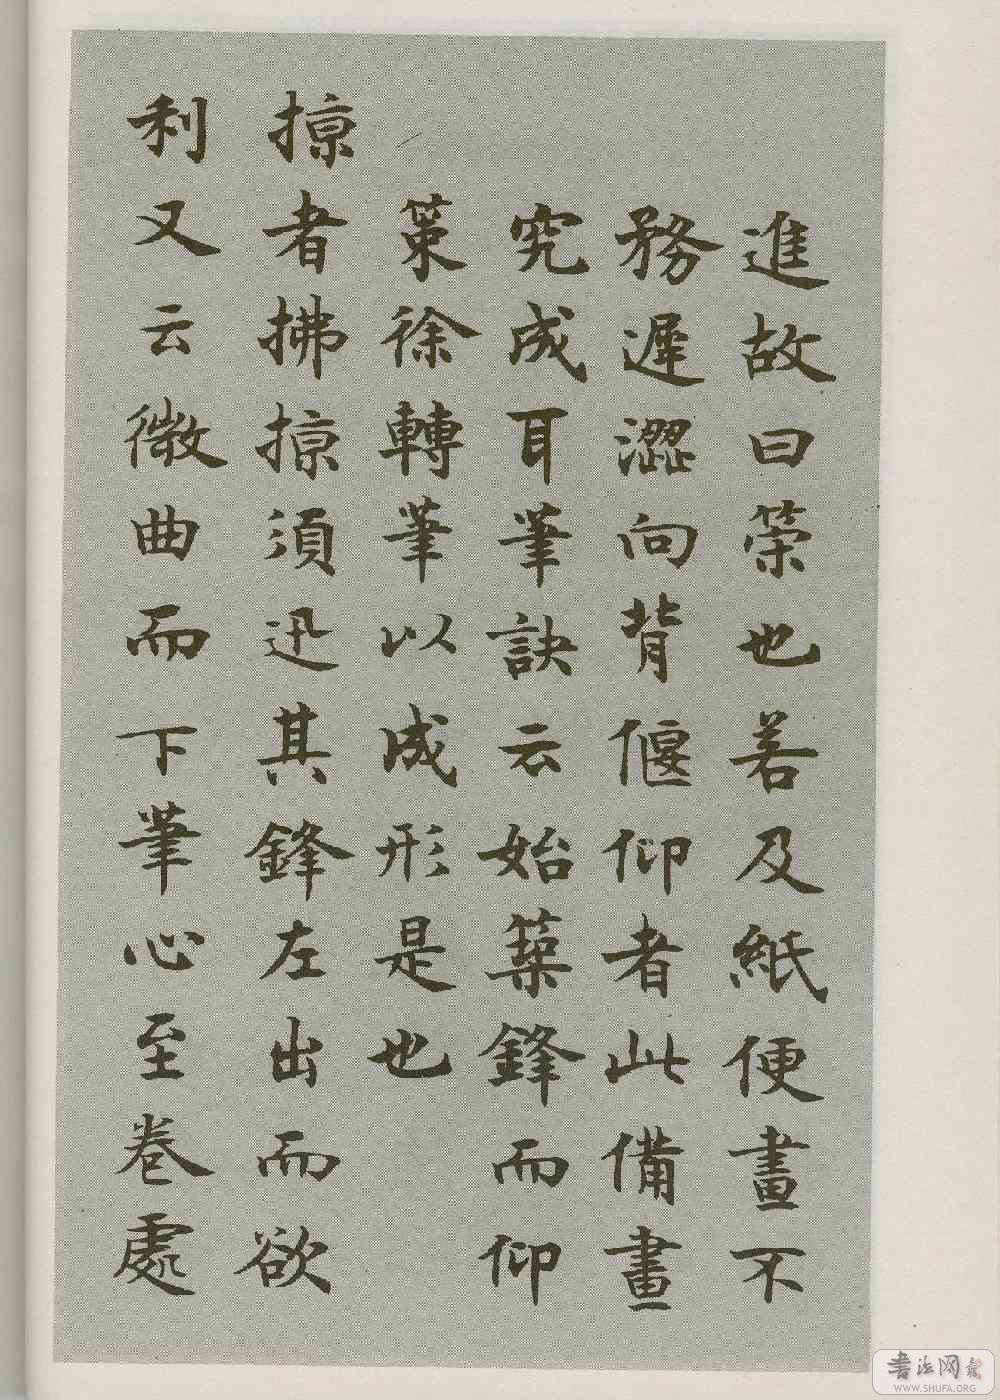 進故曰䇿也若及紙便畫不
務遲澀向背偃仰者此備畫
究成耳筆訣云始築鋒而仰
策徐轉筆以成形是也
掠者拂掠須迅其鋒左出而欲
利又云微曲而下筆心至卷處
書法网
WWW.SHUFA.ORG